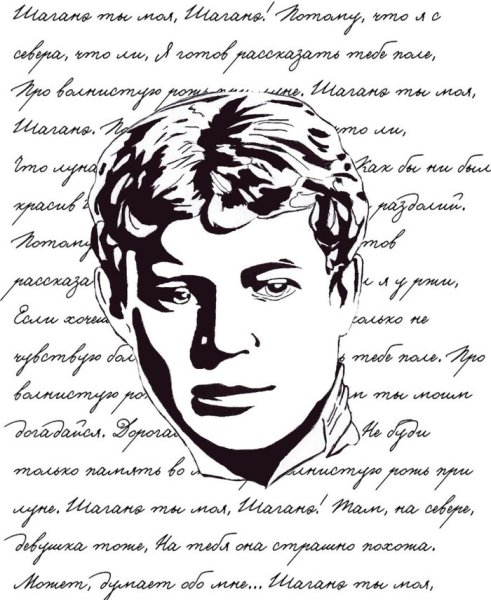 Шаганэ ты моя, Шаганэ! Потому, что я с
севера, что ли, Я готов рассказать тебе поле,
Про волнистую рожь при луне. Шаганэ ты моя,
Шаганэ. что ли,
Что луна Как бы ни был
красив раздолий.
Потому
я у ржи,
Если не
чувствую тебе поле. Про
волнистую ты моим
догадайся. Не буди
только память во волнистую рожь при
луне. Шаганэ ты моя, Шаганэ! Там, на севере,
девушка тоже, На тебя она страшно похожа.
Может, думает обо мне... Шаганэ ты моя,